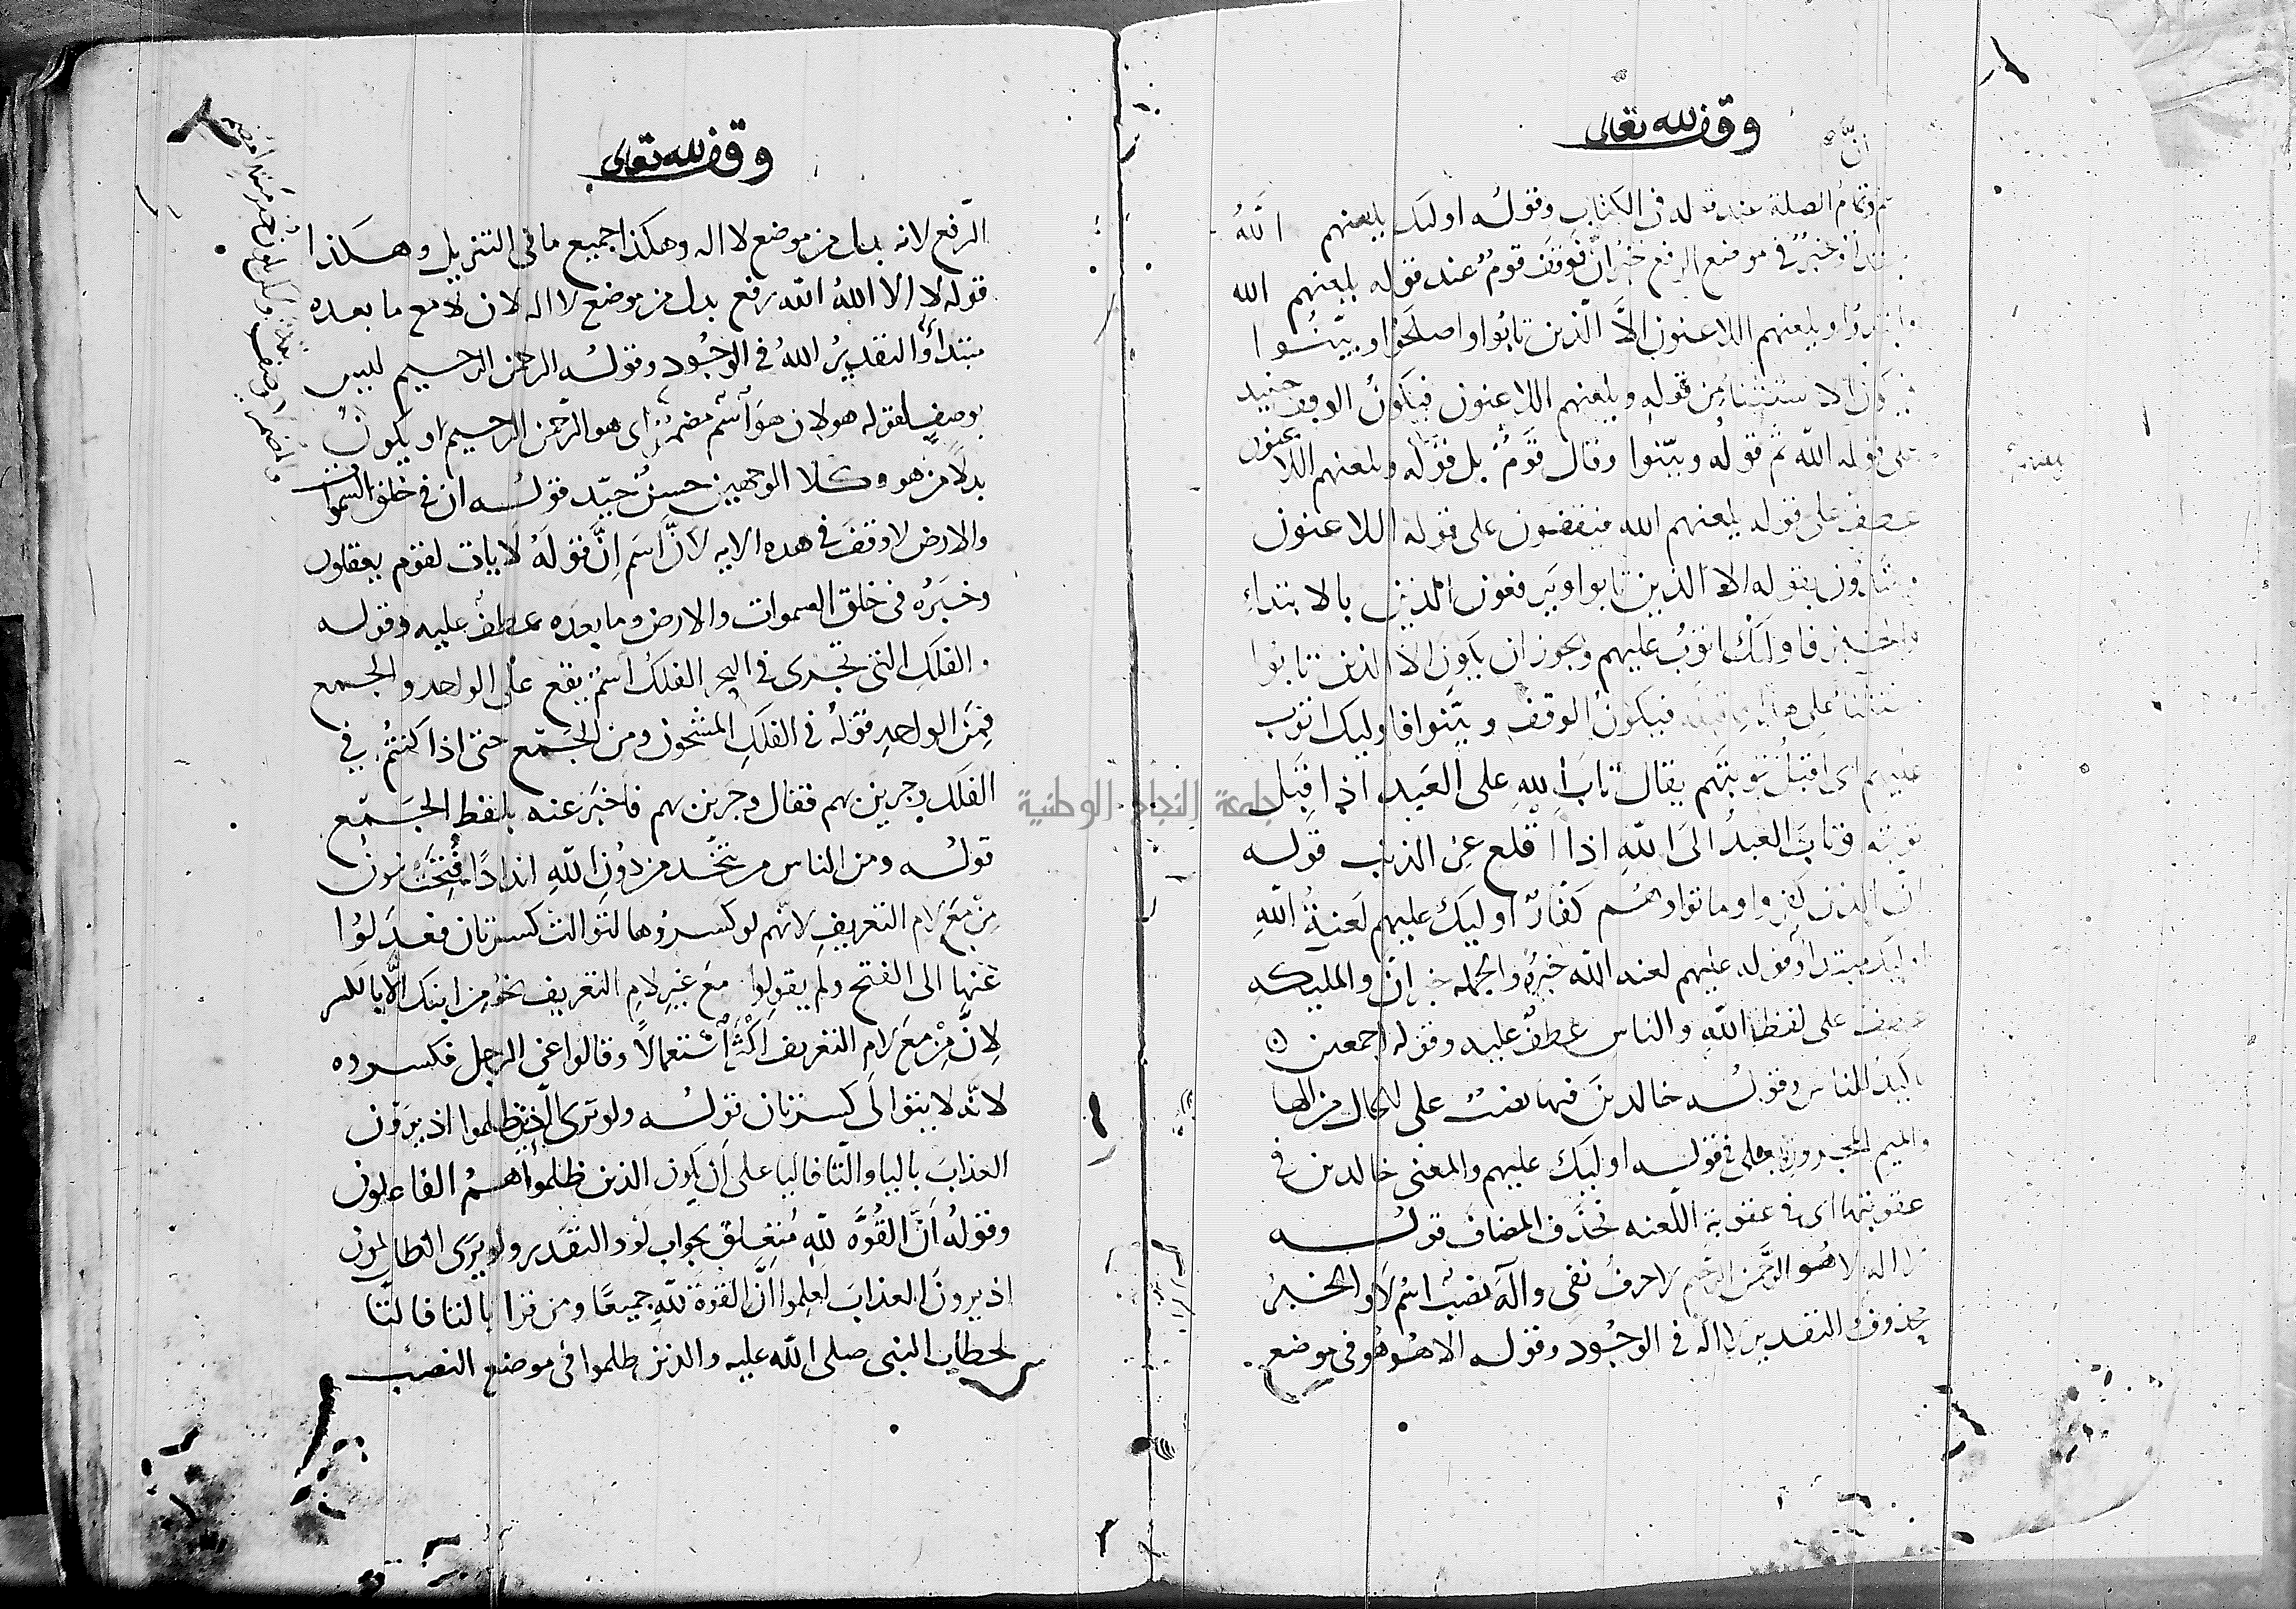 وقف لله تعالى
انّ
تم وتمامُ الصلة عند قوله فى الكتاب وقولُه اوليك يلعنهم اللهُ
وخبرٌ فى موضع الرفع خبرُ انّ فوقف قومٌ عند قوله يلعنهم الله
ويلعنهم اللاعنون الاَّ الّذين تابُوا واصلَحُوا وبيّنُوا
فيكون الاستثنا من قوله ويلعنهم اللاعنون فيكونُ الوقف حينيد
على قوله الله ثم قوله وبيّنوا وقال قومٌ بل قوله ويلعنهم اللاعنون
عطفٌ على قوله يلعنهم الله فيقفون على قوله اللاعنون
ويبتدُون بقوله الا الذين تابوا ويرفعون الذين بالابتداءِ
والخبر فاوليك اتوبُ عليهم ويجوز ان يكون الا الذين تابوا
على فيكونُ الوقف وبيّنوا فاوليك اتوب
عليهم اى اقبلُ توبتَهم يقال تابَ اللهِ على العَبد اذا قَبِل
توبته وتابَ العبدُ الىَ اللهِ اذا اقلع عن الذنب قوله
انّ الذين كفروا وماتوا وهُم كفّارٌ اوليك عليهم لعنةُ اللهِ
اوليك مبتدأ وقوله عليهم لعنه الله خبرُه والجمله خبر انّ والمليكه
عطف على لفظ اللهِ والناس عطفٌ عليه وقوله اجمعين
تاكيدٌ للناس وقولُه خالدينَ فيها نصبٌ على الحال من الها
والميم المجرورة بعلى فى قوله اوليك عليهم والمعنى خالدين فى
عقوبتها اى فى عقوبة اللّعنه فحذف المضاف قولُه
لا اله الا هُو الرَّحمن الرحيم لا حرفُ نفى وآلهَ نصبٌ اسمُ لا والخبرُ
محذوفٌ التقدير لا اله فى الوجُود وقوله الا هُو هُو فى موضع
وقف لله تعالى
الرّفع لانه بدل من موضع لا اله وهكذا جميع ما فى التنزيل وهكذا
قوله لا اله الا اللهُ الله رفع بدل من موضع لا اله لان لا مع ما بعده
مبتدأ والتقديرُ اللهُ فى الوجُود وقولُه الرحمن الرحيم ليس
بوصفٍ لقوله هو لان هوَ اسم مضمرٌ اى هو الرّحمن الرحيم او يكونُ
بدلاً من هو وكلا الوجهين حسنٌ جيّد قولُه ان فى خلق السموات
والارض لا وقفَ فى هذه الايه لانَّ اسَم اِنَّ قولَهُ لايات لقوم يعقلون
وخبرُه فى خلق السموات والارض وما بعده عطفٌ عليه وقوله
والفلكِ التى تجرى فى البحر الفلكُ اسمٌ يقع على الواحد والجمع
فمِنَ الواحدِ قولهُ فى الفلكِ المشحُون ومن الجَمع حتى اذا كنتُم فى
الفلك وجرين بهم فقال وجَرين بهم فاخبَرَ عنه بلفظ الجَمع
قولُه ومن الناس من يتّخد من دُونِ اللهِ اندادًا فُتِحَتْ نونُ
مِن معَ لام التعريفِ لانّهم لو كسرُوها لتوالت كسرتان فعَدَلوُا
عَنها الى الفتح ولم يقولوا مَع غيرِ لامِ التعريف نحو من ابنك الاّ بالكسر
لانَّ مِنْ مَع لام التعريف اكثَر استعمالاً وقالوا عَن الرجل فكسروه
لانّه لا يتوالَى كسرتان قولُه ولو ترى الّذين ظلموا اذ يرَون
العذابَ باليا والتّا فاليا على ان يكون الذين ظلموا هُمُ الفاعلون
وقولُه اَنَّ القُوّه للهِ مُتعلّق بجواب لَو والتقدير ولو يرَى الظالمون
اذ يرونَ العذابَ لعلِموا انَّ القوة للهِ جميعًا ومن قرا بالتا فالتا
لخطاب النبى صلى الله عليه والذين ظلموا فى موضع النصب
جامعة النجاح الوطنية